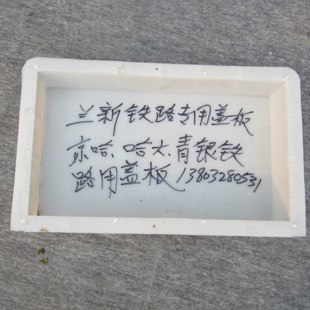 兰新铁路专用盖板
京哈、哈大、青银铁
路用盖板13803280531